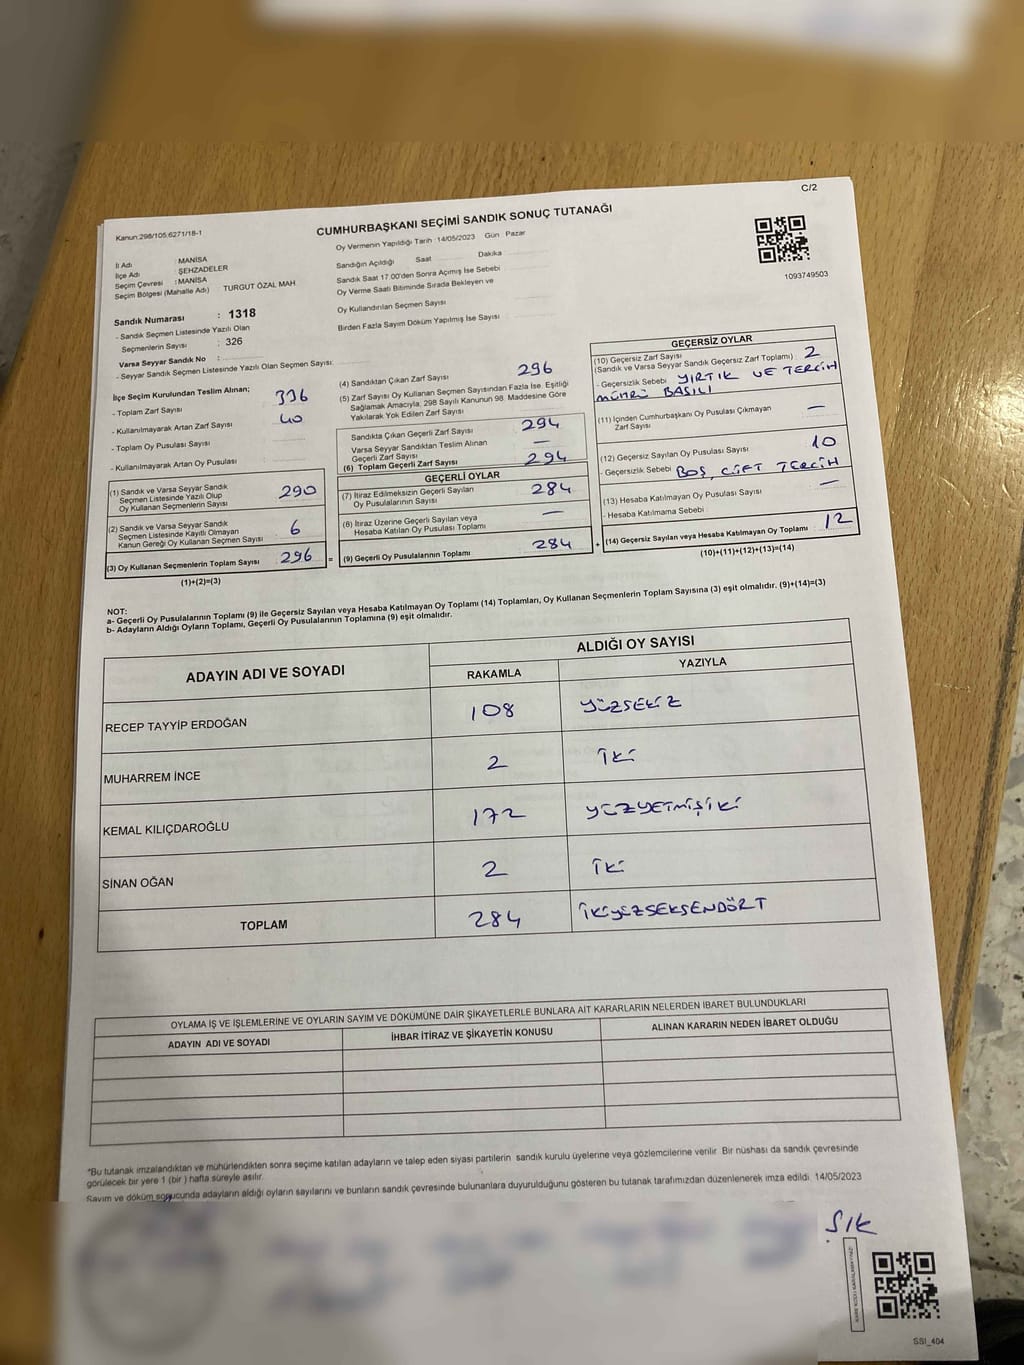 C/2
Kanun:298/105,6271/18-1
CUMHURBAŞKANI SEÇİMİ SANDIK SONUÇ TUTANAĞI
1093749503
İl Adı : MANİSA
İlçe Adı : ŞEHZADELER
Seçim Çevresi : MANİSA
Seçim Bölgesi (Mahalle Adı) TURGUT ÖZAL MAH
Sandık Numarası : 1318
- Sandık Seçmen Listesinde Yazılı Olan
Seçmenlerin Sayısı : 326
Varsa Seyyar Sandık No :
- Seyyar Sandık Seçmen Listesinde Yazılı Olan Seçmen Sayısı:
Oy Vermenin Yapıldığı Tarih 14/05/2023 Gün Pazar
Sandığın Açıldığı Saat Dakika
Sandık Saat 17.00'den Sonra Açılmış İse Sebebi
Oy Verme Saati Bitiminde Sırada Bekleyen ve
Oy Kullandırılan Seçmen Sayısı
Birden Fazla Sayım Döküm Yapılmış İse Sayısı
İlçe Seçim Kurulundan Teslim Alınan:
- Toplam Zarf Sayısı 336
- Kullanılmayarak Artan Zarf Sayısı 40
- Toplam Oy Pusulası Sayısı
- Kullanılmayarak Artan Oy Pusulası
(1) Sandık ve Varsa Seyyar Sandık
Seçmen Listesinde Yazılı Olup
Oy Kullanan Seçmenlerin Sayısı 290
(2) Sandık ve Varsa Seyyar Sandık
Seçmen Listesinde Kayıtlı Olmayan
Kanun Gereği Oy Kullanan Seçmen Sayısı 6
(3) Oy Kullanan Seçmenlerin Toplam Sayısı 296 =
(1)+(2)=(3)
(4) Sandıktan Çıkan Zarf Sayısı 296
(5) Zarf Sayısı Oy Kullanan Seçmen Sayısından Fazla İse, Eşitliği
Sağlamak Amacıyla, 298 Sayılı Kanunun 98. Maddesine Göre
Yakılarak Yok Edilen Zarf Sayısı
Sandıkta Çıkan Geçerli Zarf Sayısı 294
Varsa Seyyar Sandıktan Teslim Alınan
Geçerli Zarf Sayısı —
(6) Toplam Geçerli Zarf Sayısı 294
GEÇERLİ OYLAR
(7) İtiraz Edilmeksizin Geçerli Sayılan
Oy Pusulalarının Sayısı 284
(8) İtiraz Üzerine Geçerli Sayılan veya
Hesaba Katılan Oy Pusulası Toplamı —
(9) Geçerli Oy Pusulalarının Toplamı 284 +
GEÇERSİZ OYLAR
(10) Geçersiz Zarf Sayısı
(Sandık ve Varsa Seyyar Sandık Geçersiz Zarf Toplamı) 2
- Geçersizlik Sebebi YIRTIK VE TERCİH
MÜHRÜ BASILI
(11) İçinden Cumhurbaşkanı Oy Pusulası Çıkmayan
Zarf Sayısı —
(12) Geçersiz Sayılan Oy Pusulası Sayısı 10
- Geçersizlik Sebebi BOŞ, ÇİFT TERCİH
(13) Hesaba Katılmayan Oy Pusulası Sayısı —
- Hesaba Katılmama Sebebi
(14) Geçersiz Sayılan veya Hesaba Katılmayan Oy Toplamı 12
(10)+(11)+(12)+(13)=(14)
NOT:
a- Geçerli Oy Pusulalarının Toplamı (9) ile Geçersiz Sayılan veya Hesaba Katılmayan Oy Toplamı (14) Toplamları, Oy Kullanan Seçmenlerin Toplam Sayısına (3) eşit olmalıdır. (9)+(14)=(3)
b- Adayların Aldığı Oyların Toplamı, Geçerli Oy Pusulalarının Toplamına (9) eşit olmalıdır.
ADAYIN ADI VE SOYADI
ALDIĞI OY SAYISI
RAKAMLA YAZIYLA
RECEP TAYYİP ERDOĞAN 108 YÜZSEKİZ
MUHARREM İNCE 2 İKİ
KEMAL KILIÇDAROĞLU 172 YÜZYETMİŞİKİ
SİNAN OĞAN 2 İKİ
TOPLAM 284 İKİYÜZSEKSENDÖRT
OYLAMA İŞ VE İŞLEMLERİNE VE OYLARIN SAYIM VE DÖKÜMÜNE DAİR ŞİKAYETLERLE BUNLARA AİT KARARLARIN NELERDEN İBARET BULUNDUKLARI
ADAYIN ADI VE SOYADI İHBAR İTİRAZ VE ŞİKAYETİN KONUSU ALINAN KARARIN NEDEN İBARET OLDUĞU
*Bu tutanak imzalandıktan ve mühürlendikten sonra seçime katılan adayların ve talep eden siyasi partilerin sandık kurulu üyelerine veya gözlemcilerine verilir. Bir nüshası da sandık çevresinde
görülecek bir yere 1 (bir) hafta süreyle asılır.
Sayım ve döküm sonucunda adayların aldığı oyların sayılarını ve bunların sandık çevresinde bulunanlara duyurulduğunu gösteren bu tutanak tarafımızdan düzenlenerek imza edildi. 14/05/2023
SSİ_404